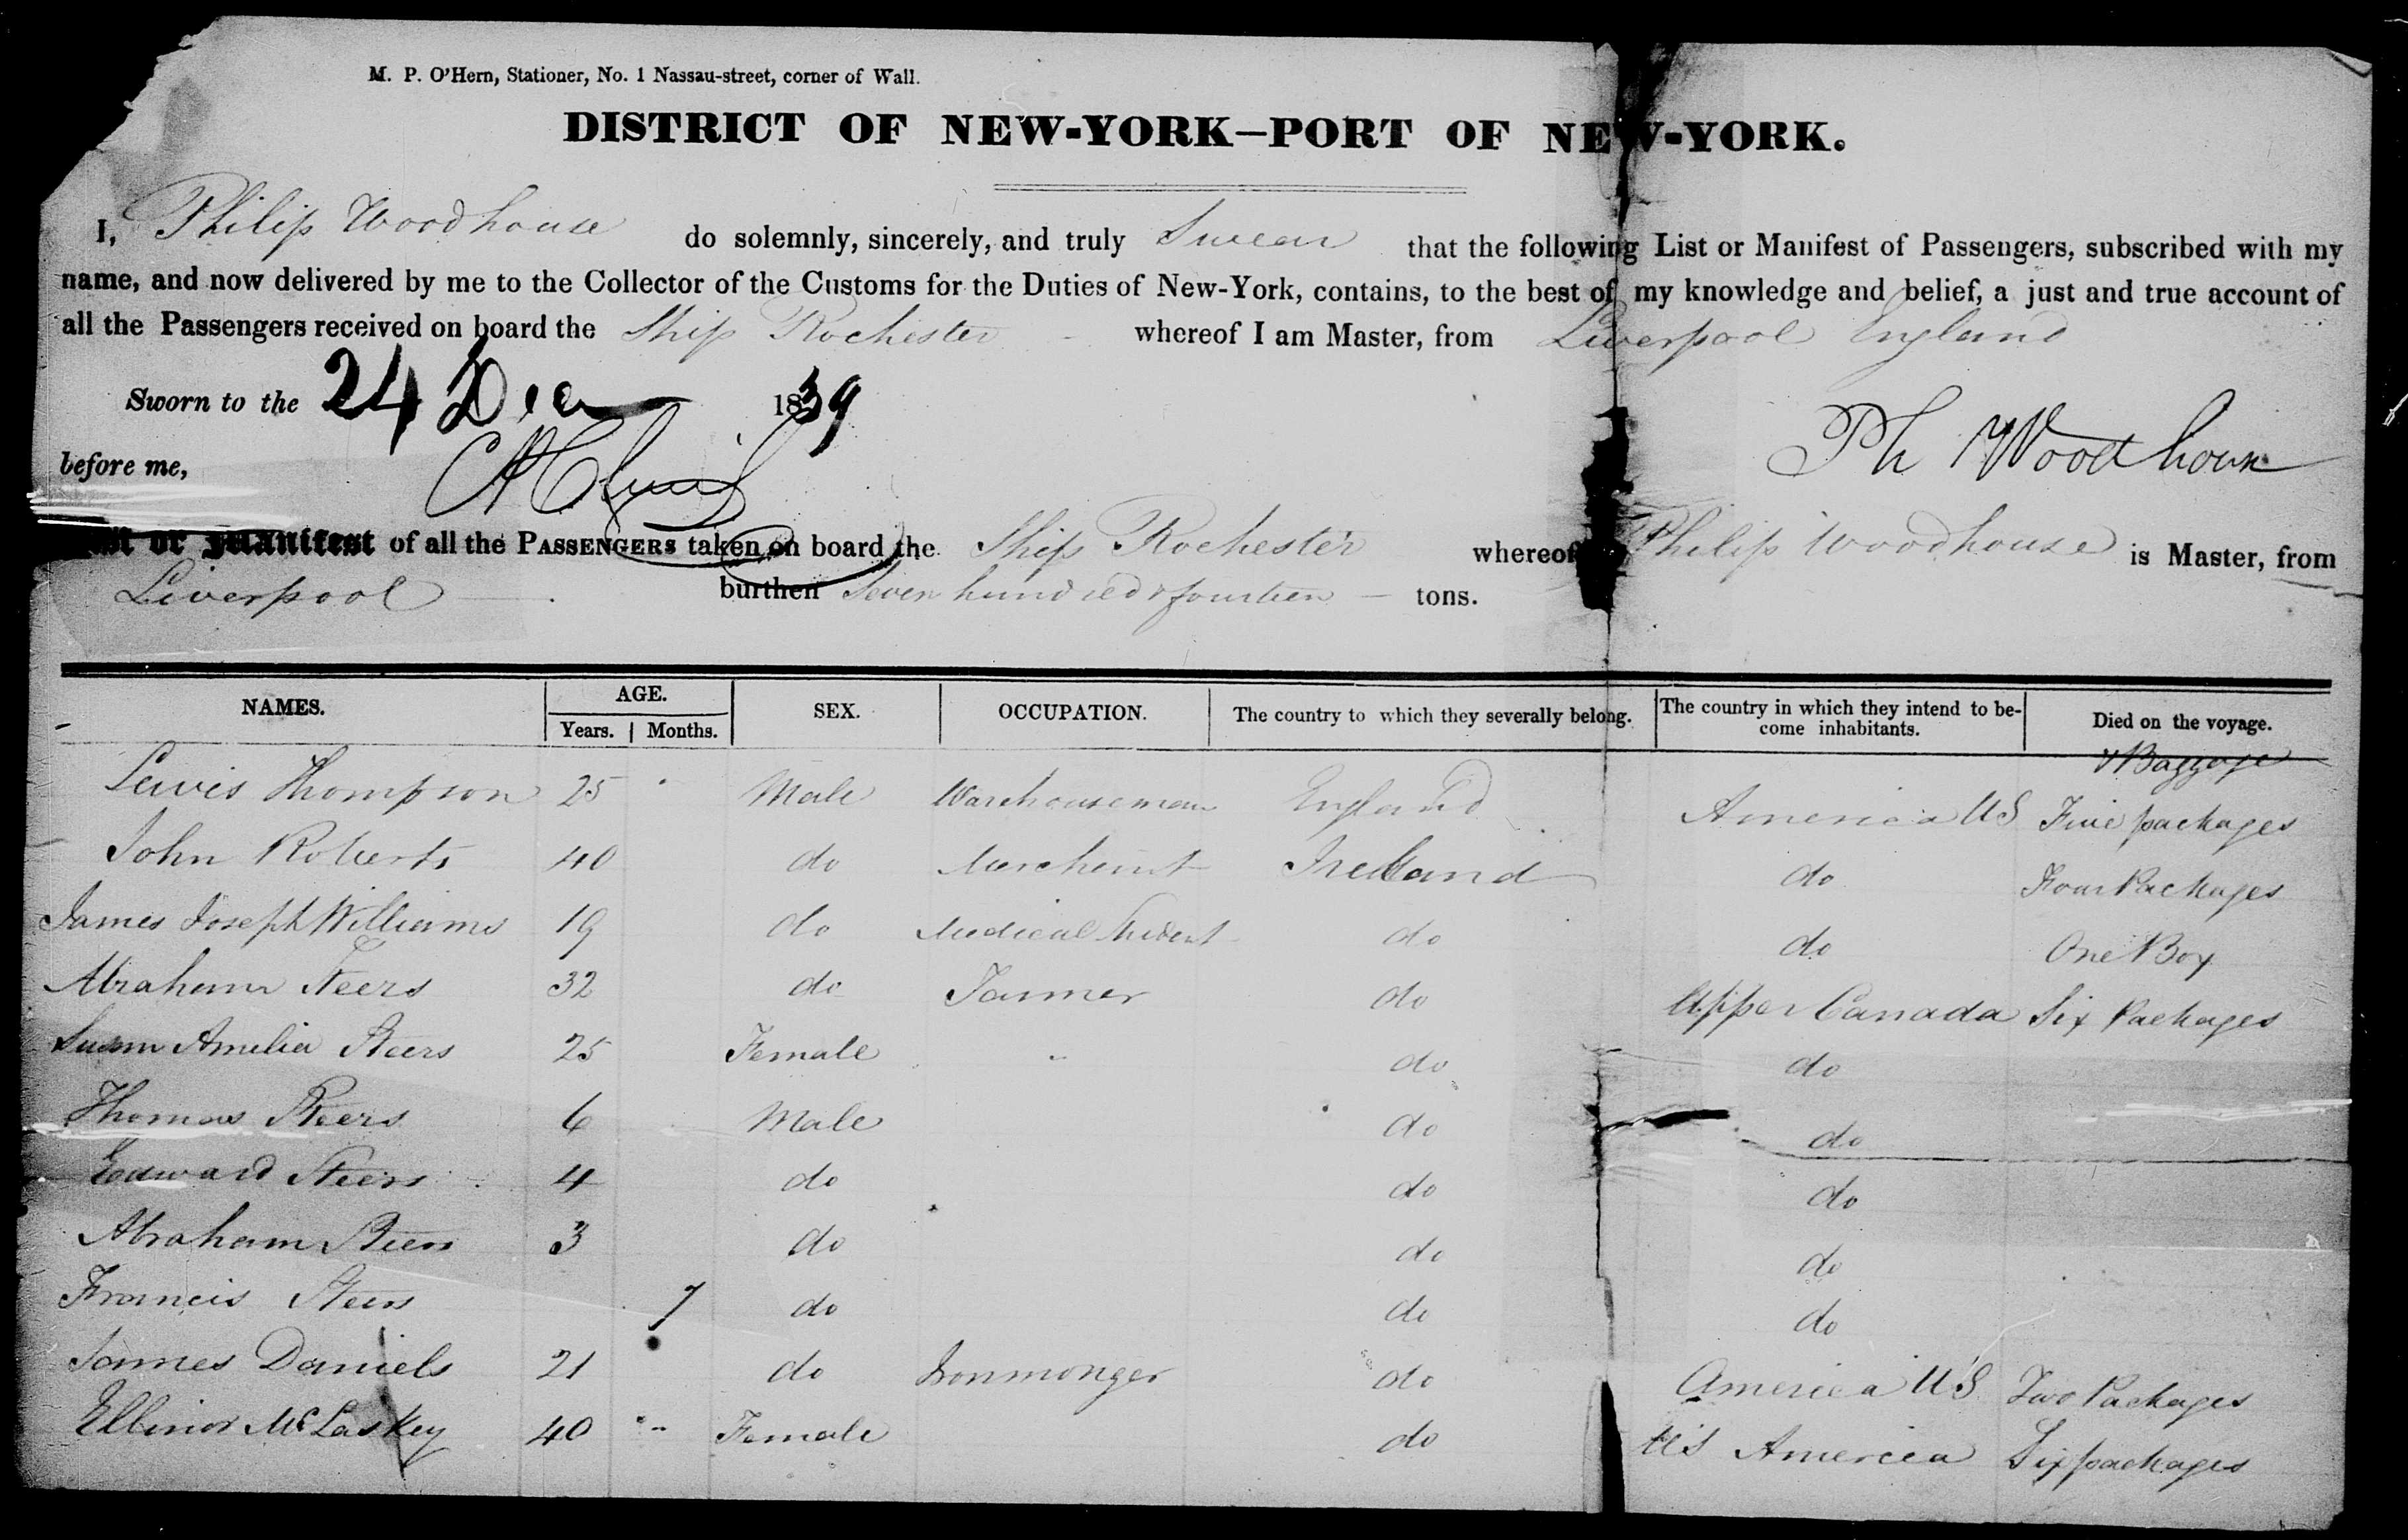 M. P. O'Hern, Stationer, No. 1 Nassau-street, corner of Wall.
DISTRICT OF NEW-YORK—PORT OF NEW-YORK.
I, Philip Woodhouse do solemnly, sincerely, and truly Swear that the following List or Manifest of Passengers, subscribed with my
name, and now delivered by me to the Collector of the Customs for the Duties of New-York, contains, to the best of my knowledge and belief, a just and true account of
all the Passengers received on board the Ship Rochester whereof I am Master, from Liverpool England
Sworn to the 24 Dec 1839
before me,
Ph Woodhouse
or Manifest of all the PASSENGERS taken on board the Ship Rochester whereof Philip Woodhouse is Master, from
Liverpool burthen Seven hundred & fourteen tons.
NAMES. AGE. Years. Months. SEX. OCCUPATION. The country to which they severally belong. The country in which they intend to become inhabitants. Died on the voyage.
& Baggage
Lewis Thompson 25 Male Warehouseman England America US Five packages
John Roberts 40 do Merchant Ireland do Four Packages
James Joseph Williams 19 do Medical Student do do One Box
Abraham Steers 32 do Farmer do Upper Canada Six Packages
Susan Amelia Steers 25 Female " do do
Thomas Steers 6 Male do do
Edward Steers 4 do do do
Abraham Steers 3 do do do
Francis Steers 7 do do do
James Daniels 21 do Ironmonger do America US Two Packages
Ellinor McLaskey 40 " Female do US America Six packages